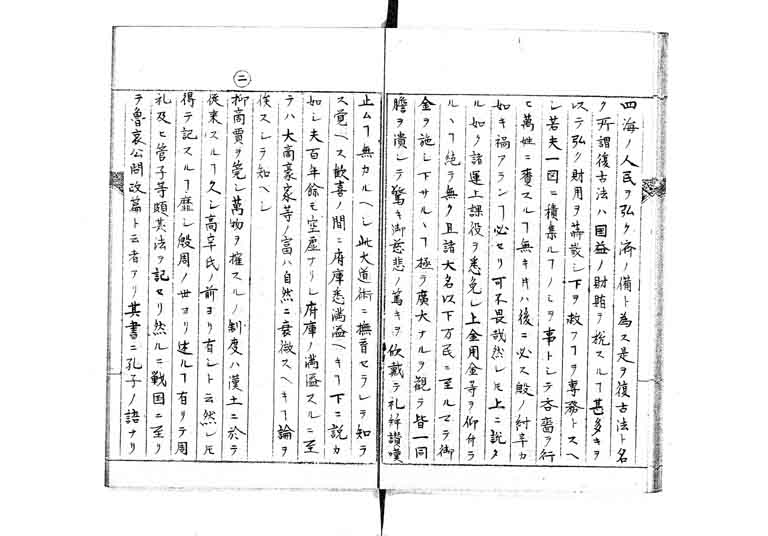 四海ノ人民ヲ弘ク済ノ備ト為ス是ヲ復古法ト名
ク所謂復古法ハ国益ノ財賄ヲ税スルヿ甚多キヲ
以テ弘ク財用ヲ蕃敷シ下ヲ救フヿヲ専務トスヘ
シ若夫一図ニ積集ルヿノミヲ事トシテ吝嗇ヲ行
ヒ萬姓ニ賚スルヿ無キ片ハ後ニ必ス殷ノ紂辛カ
如キ禍アランヿ必セリ可不畏哉然レ𪜈上ニ説タ
ル如ク諸運上課役ヲ悉免シ上金用金等ヲ仰付ラ
ルヽヿ絶テ無ク且諸大名以下万民ニ至ルマテ御
金ヲ施シ下サルヽヿ極テ廣大ナルヲ観テ皆一同
膽ヲ潰シテ驚キ御慈悲ノ篤キヲ欣戴テ礼拜讃嘆
止ムヿ無カルヘシ此大道術ニ撫育セラレテ知ラ
ス覚ヘス歓喜ノ間ニ府庫悉満溢ヘキヿ下ニ説カ
如シ夫百年餘モ空虚ナリシ府庫ノ満溢スルニ至
テハ大高豪家等ノ富ハ自然ニ衰微スヘキヿ論ヲ
俟スシテ知ヘシ
㊁
抑商賈ヲ筦シ萬物ヲ搉スルノ制度ハ漢土ニ於テ
従来スルヿ久シ高辛氏ノ前ヨリ有シト云然レ𪜈
得テ記スルヿ靡シ殷周ノ世ヨリ述ルヿ有リテ周
礼及ヒ管子等頗其法ヲ記セリ然ルニ戦国ニ至リ
テ魯哀公問政篇ト云者アリ其書ニ孔子ノ語ナリ